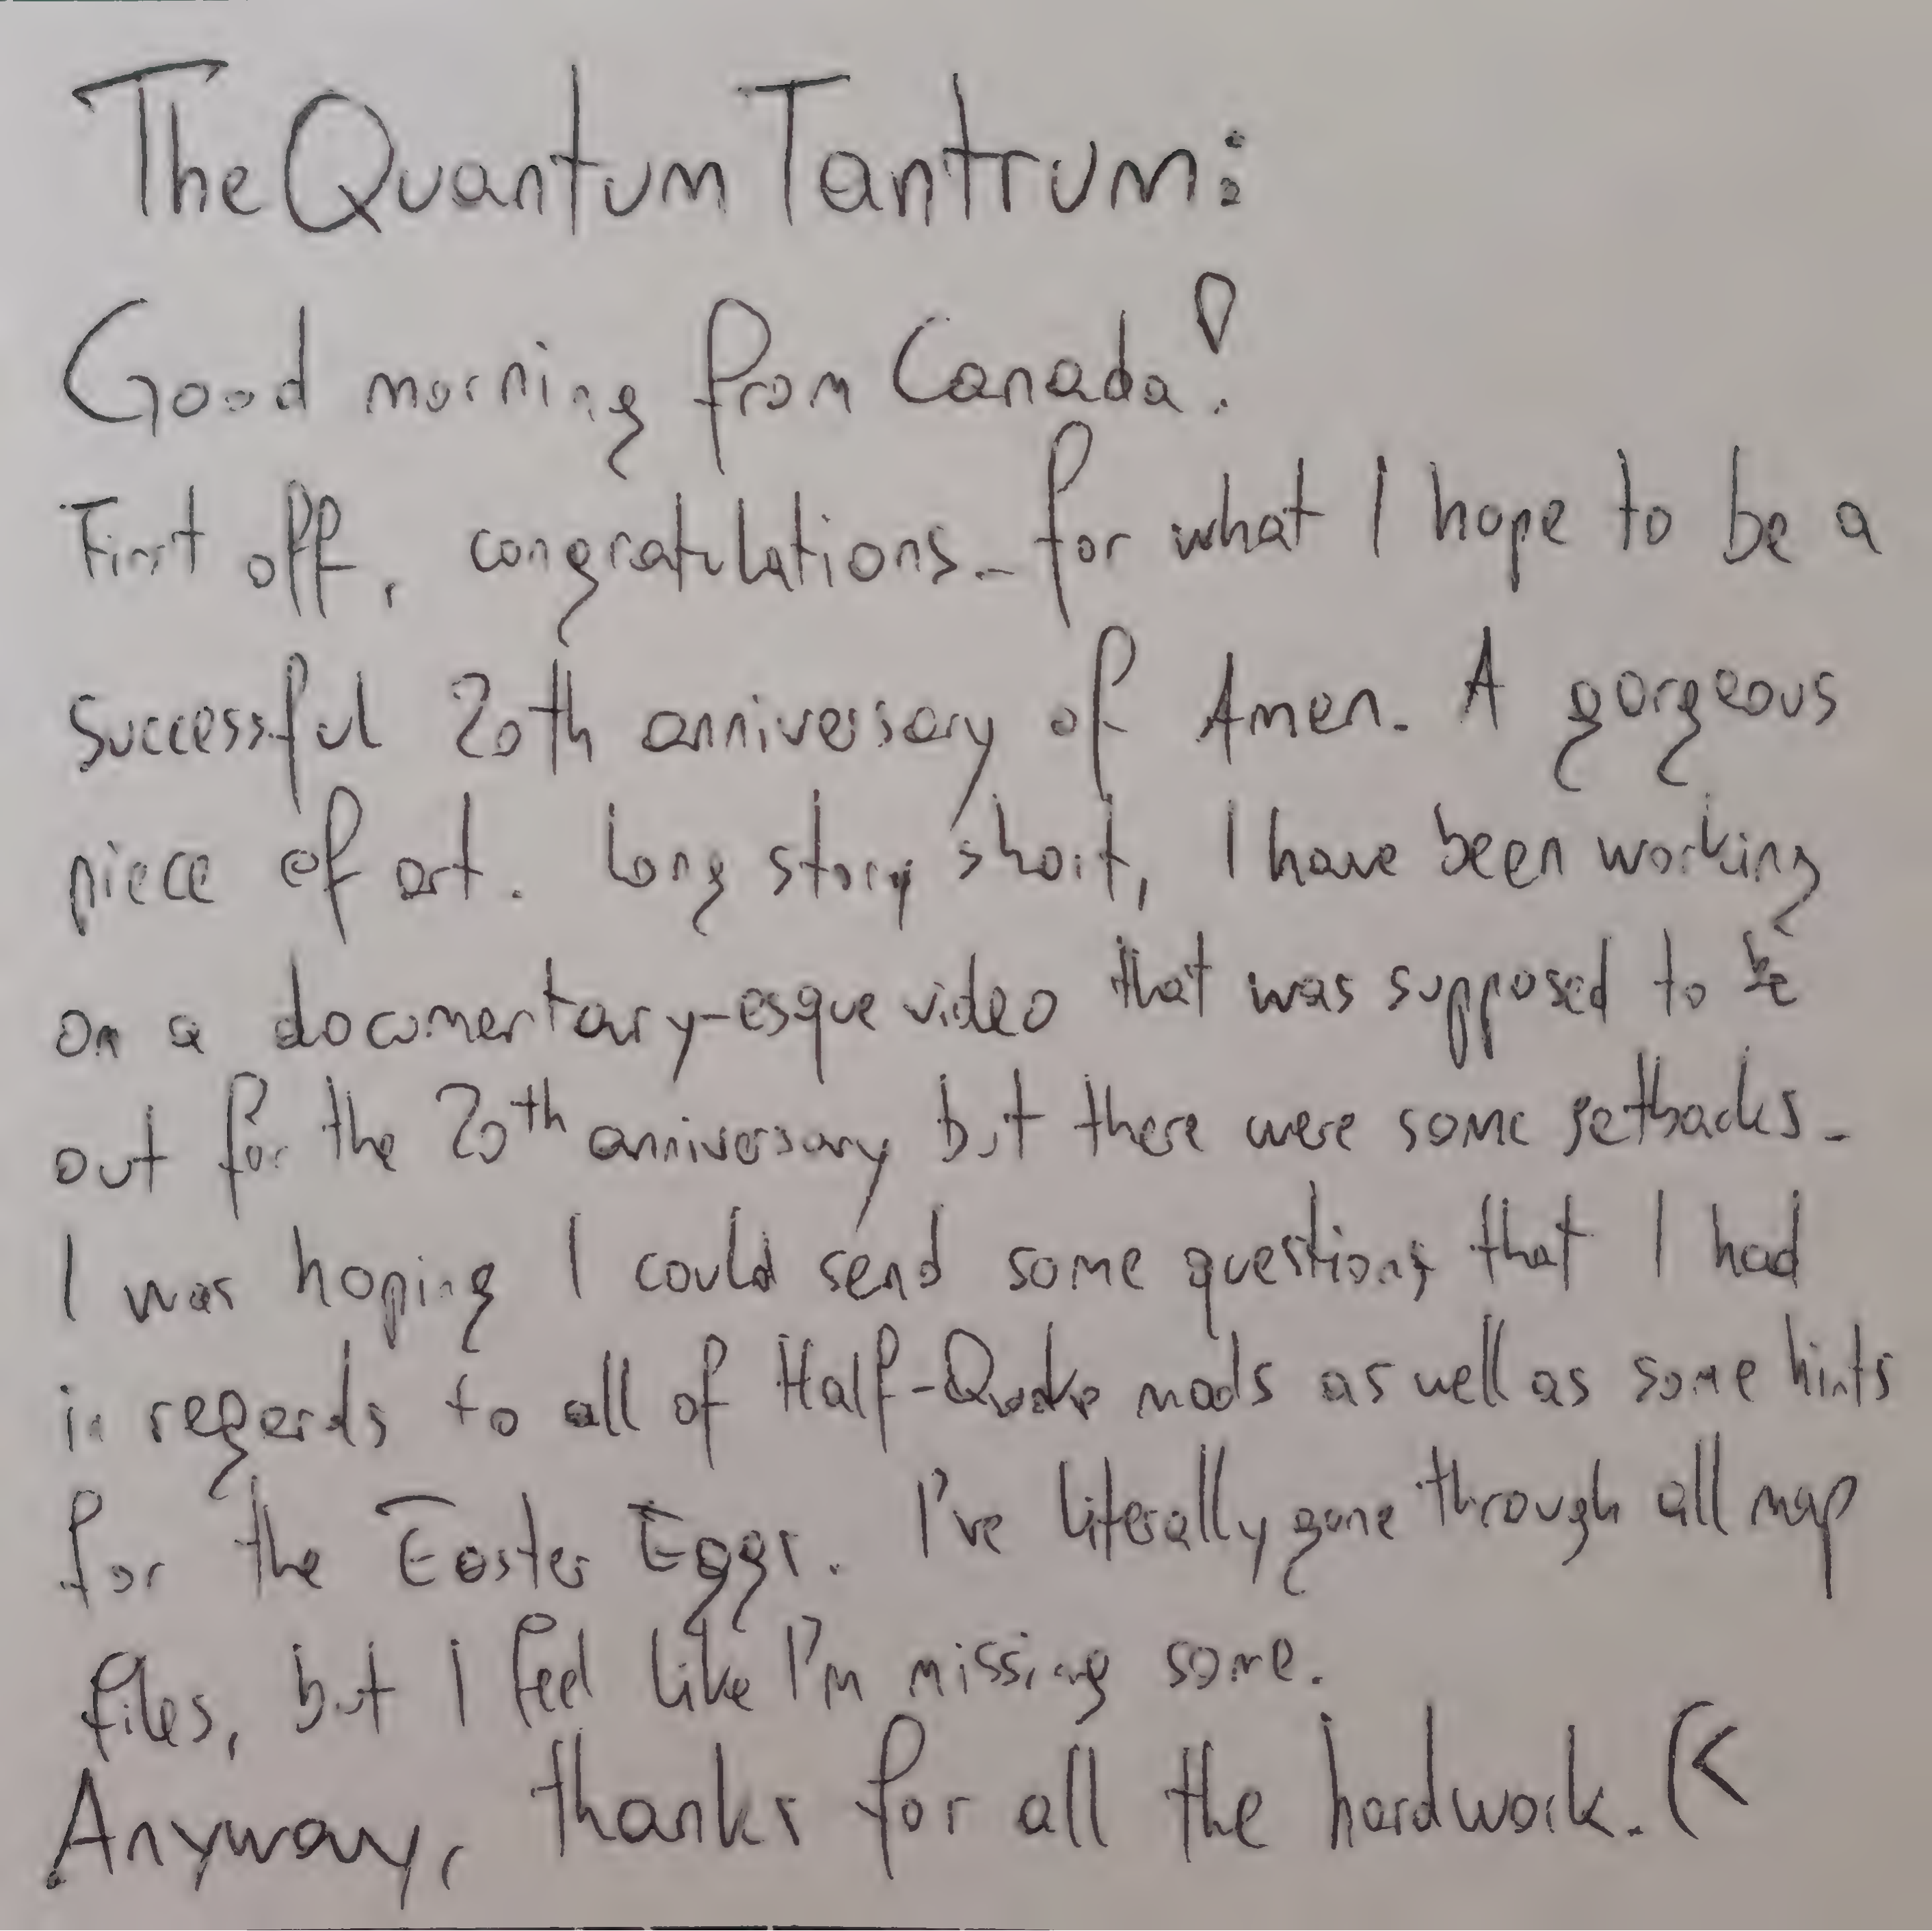 The Quantum Tantrum:
Good morning from Canada!
First off, congratulations - for what I hope to be a
successful 20th anniversary of Amen. A gorgeous
piece of art. Long story short, I have been working
on a documentary-esque video that was supposed to be
out for the 20th anniversary but there were some setbacks -
I was hoping I could send some questions that I had
in regards to all of Half-Quake mods as well as some hints
for the Easter Eggs. I've literally gone through all map
files, but I feel like I'm missing some.
Anyway, thanks for all the hardwork. (<